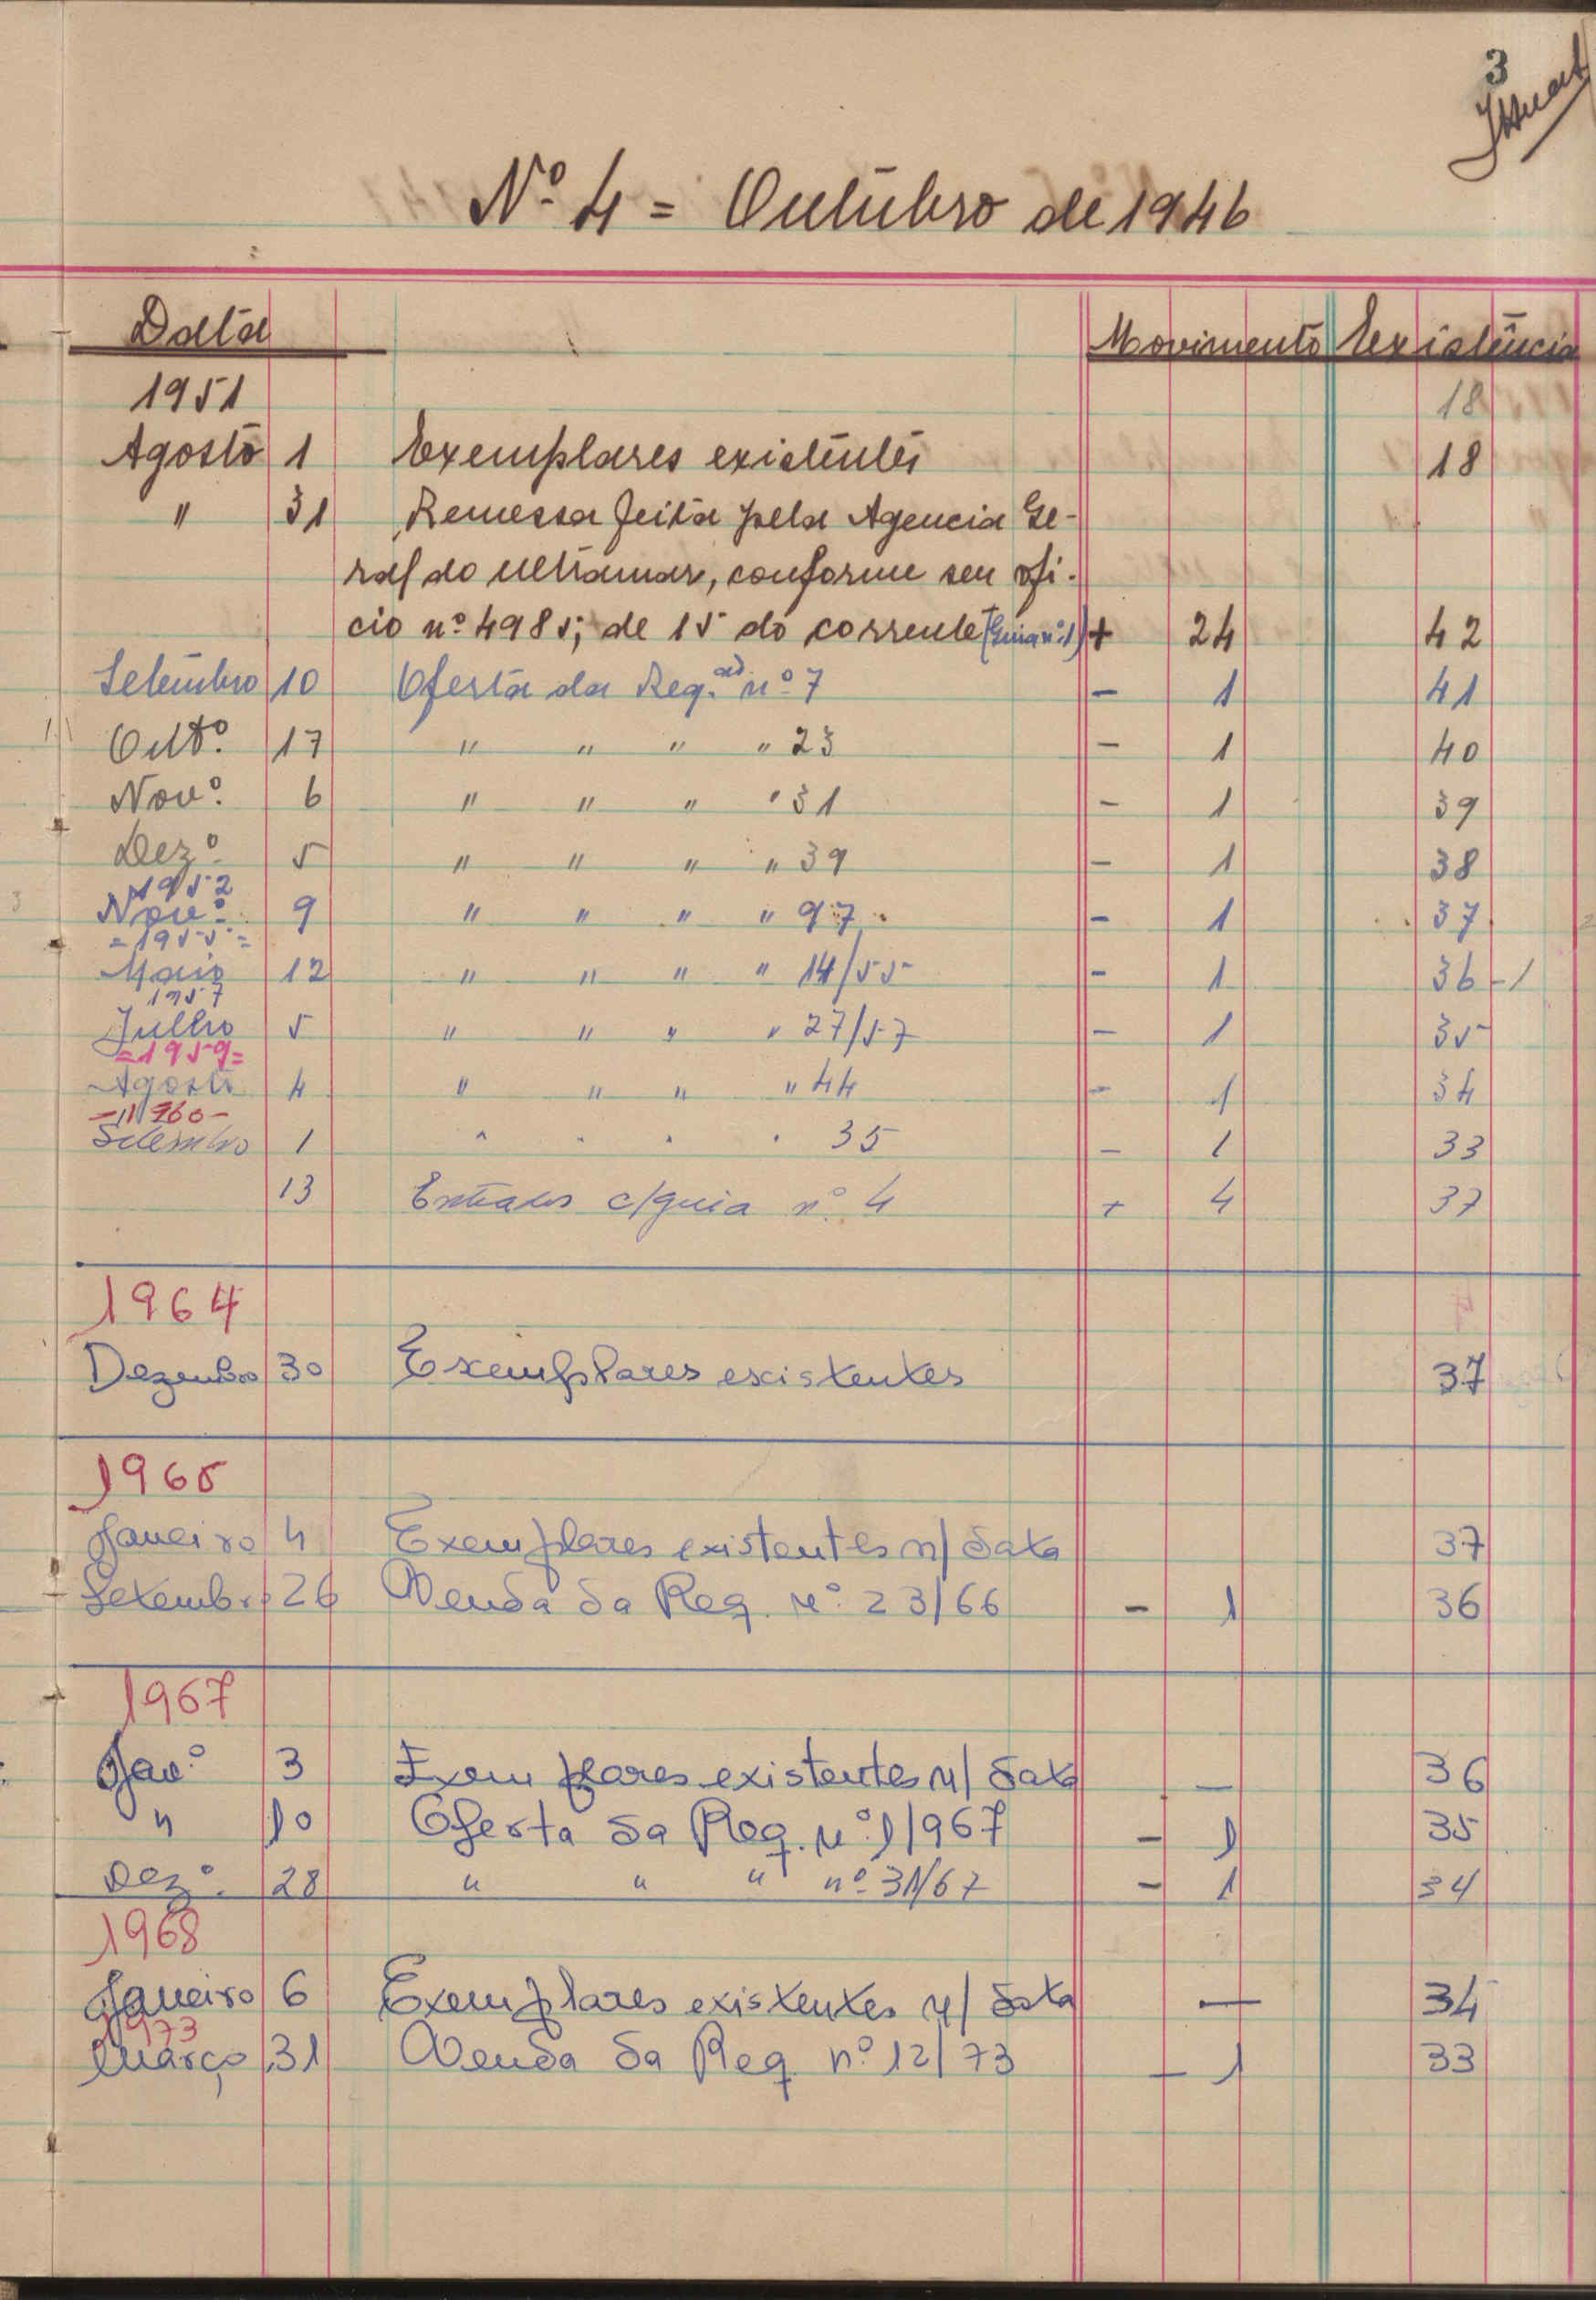 3
Nº 4 = Outubro de 1946
Data Movimento Existência
1951 18
Agosto 1 Exemplares existentes 18
" 31 Remessa feita pela Agencia Ge-
ral do Ultramar, conforme seu ofi-
cio nº 4985, de 15 do corrente (Guia nº 1) + 24 42
Setembro 10 Oferta da Req.ão nº 7 - 1 41
Outº. 17 " " " " 23 - 1 40
Novº. 6 " " " " 31 - 1 39
Dezº. 5 " " " " 39 - 1 38
1952
Novº. 9 " " " " 97 - 1 37
=1955=
Maio 12 " " " " 14/55 - 1 36 -1
1957
Julho 5 " " " " 27/57 - 1 35
=1959=
Agosto 4 " " " " 44 - 1 34
-1960-
Setembro 1 " " " " 35 - 1 33
13 c/guia nº 4 + 4 37
1964
Dezembro 30 Exemplares existentes 37
1965
Janeiro 4 Exemplares existentes n/ data 37
Setembro 26 Venda da Req. nº 23/66 - 1 36
1967
Janº. 3 Exemplares existentes n/ data — 36
" 10 Oferta da Req. nº 1/967 - 1 35
Dezº. 28 " " " nº 31/67 - 1 34
1968
Janeiro 6 Exemplares existentes n/ data — 34
1973
Março 31 Venda da Req. nº 12/73 - 1 33